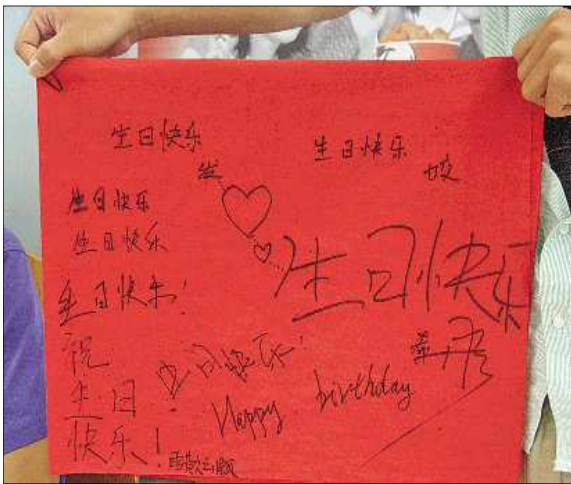 生日快乐
生日快乐
生日快乐
生日快乐
生日快乐
生日快乐!
祝
生日
快乐!
生日快乐!
Happy birthday